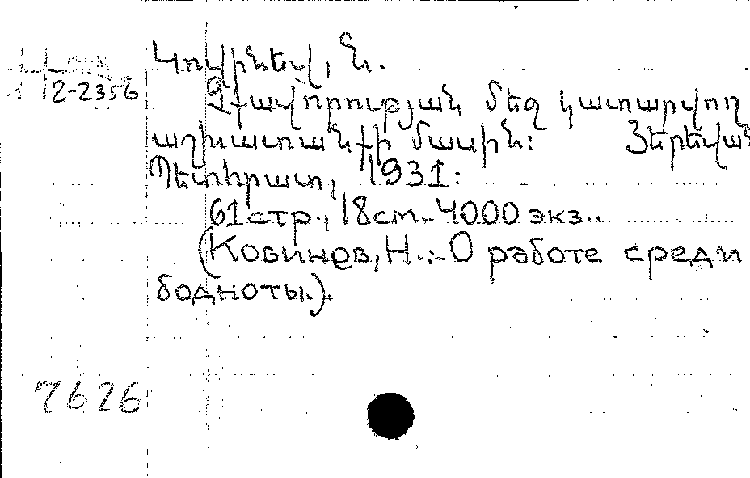 Կովինեվ, Ն.
12-2356
Չքավորության մեջ կատարվող
աշխատանքի մասին: Յերեվան
Պետհրատ, 1931:
61 стр., 18 cm. 4000 экз..
(Ковинев, Н.:- О работе среди
бодноты.).
7626